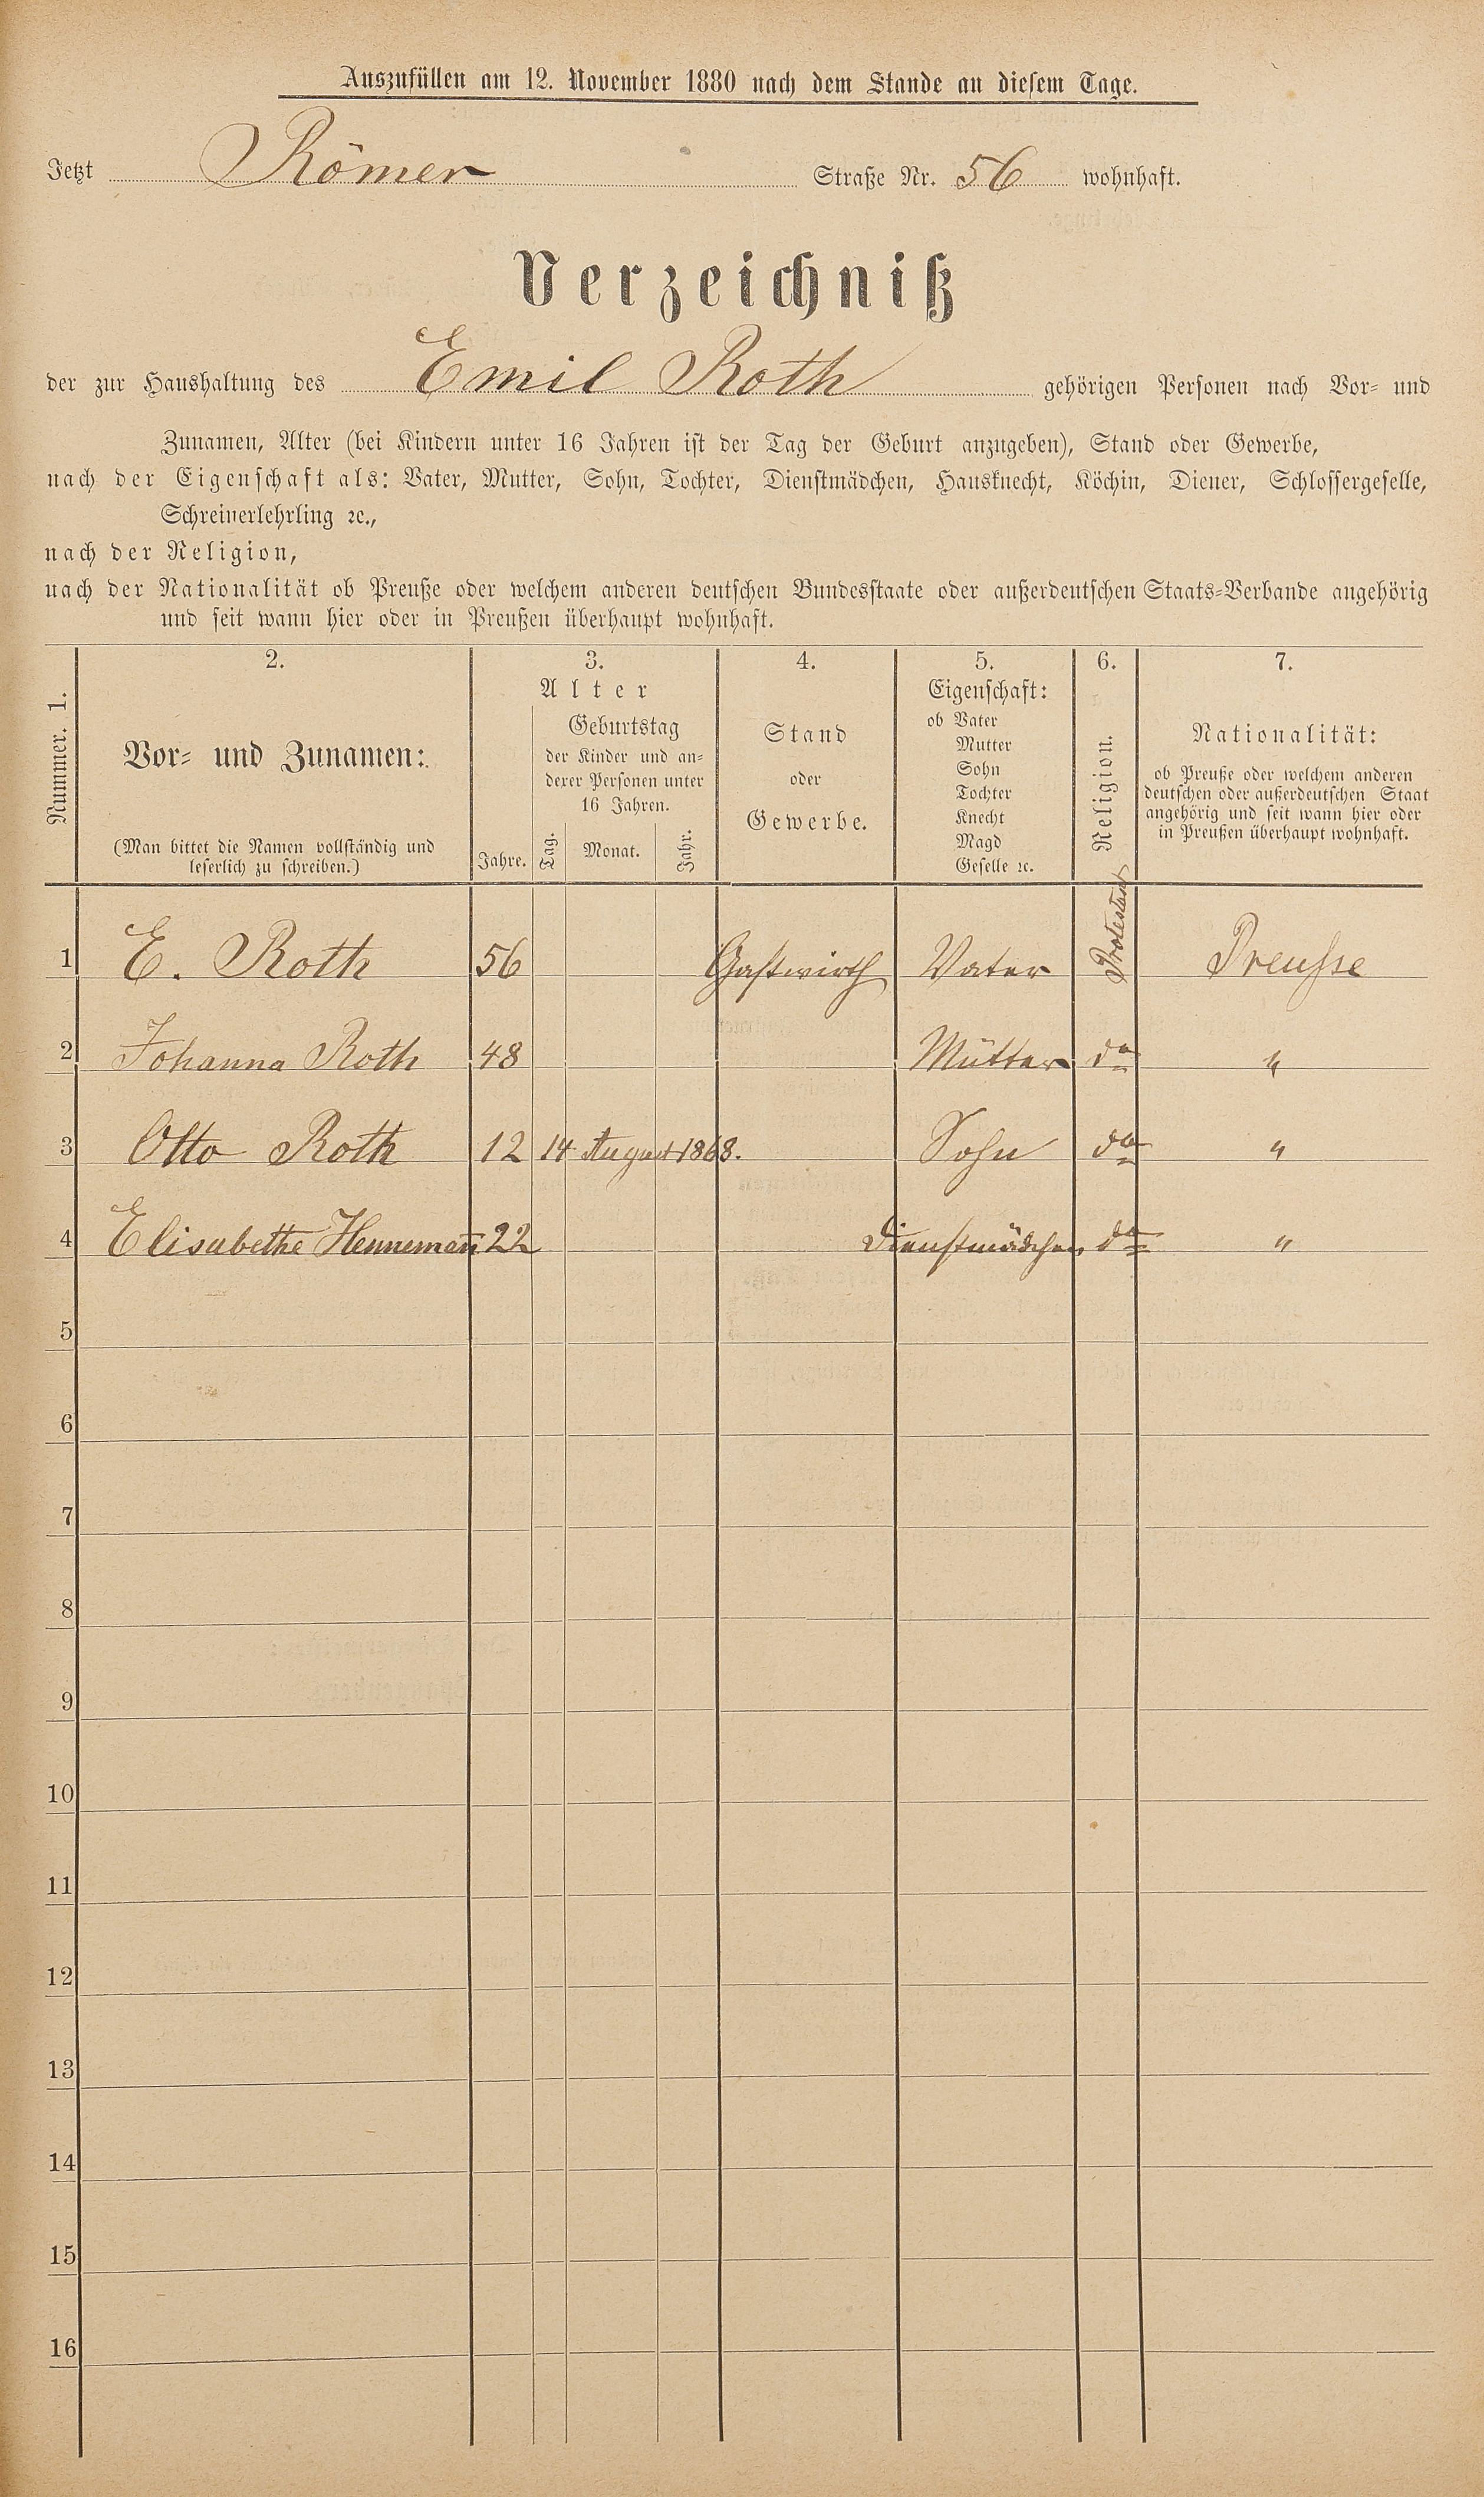 Auszufüllen am 12. November 1880 nach dem Stande an diesem Tage.
Jetzt Römer Straße Nr. 56 wohnhaft.
Verzeichniß
der zur Haushaltung des Emil Roth gehörigen Personen nach Vor- und
Zunamen, Alter (bei Kindern unter 16 Jahren ist der Tag der Geburt anzugeben), Stand oder Gewerbe,
nach der Eigenschaft als: Vater, Mutter, Sohn, Tochter, Dienstmädchen, Hausknecht, Köchin, Diener, Schlossergeselle,
Schreinerlehrling ꝛc.,
nach der Religion,
nach der Nationalität ob Preuße oder welchem anderen deutschen Bundesstaate oder außerdeutschen Staats-Verbande angehörig
und seit wann hier oder in Preußen überhaupt wohnhaft.
Nummer. 1.
2.
Vor- und Zunamen:
(Man bittet die Namen vollständig und
leserlich zu schreiben.)
3.
Alter
Jahre.
Geburtstag
der Kinder und an-
derer Personen unter
16 Jahren.
Tag. Monat. Jahr.
4.
Stand
oder
Gewerbe.
5.
Eigenschaft:
ob Vater
Mutter
Sohn
Tochter
Knecht
Magd
Geselle ꝛc.
6.
Religion.
7.
Nationalität:
ob Preuße oder welchem anderen
deutschen oder außerdeutschen Staat
angehörig und seit wann hier oder
in Preußen überhaupt wohnhaft.
1 E. Roth 56 Gastwirth Vater Protestant Preusse
2 Johanna Roth 48 Mutter do "
3 Otto Roth 12 14 August 1868. Sohn do "
4 Elisabethe Hennemañ 22 Dienstmädchen do "
5
6
7
8
9
10
11
12
13
14
15
16